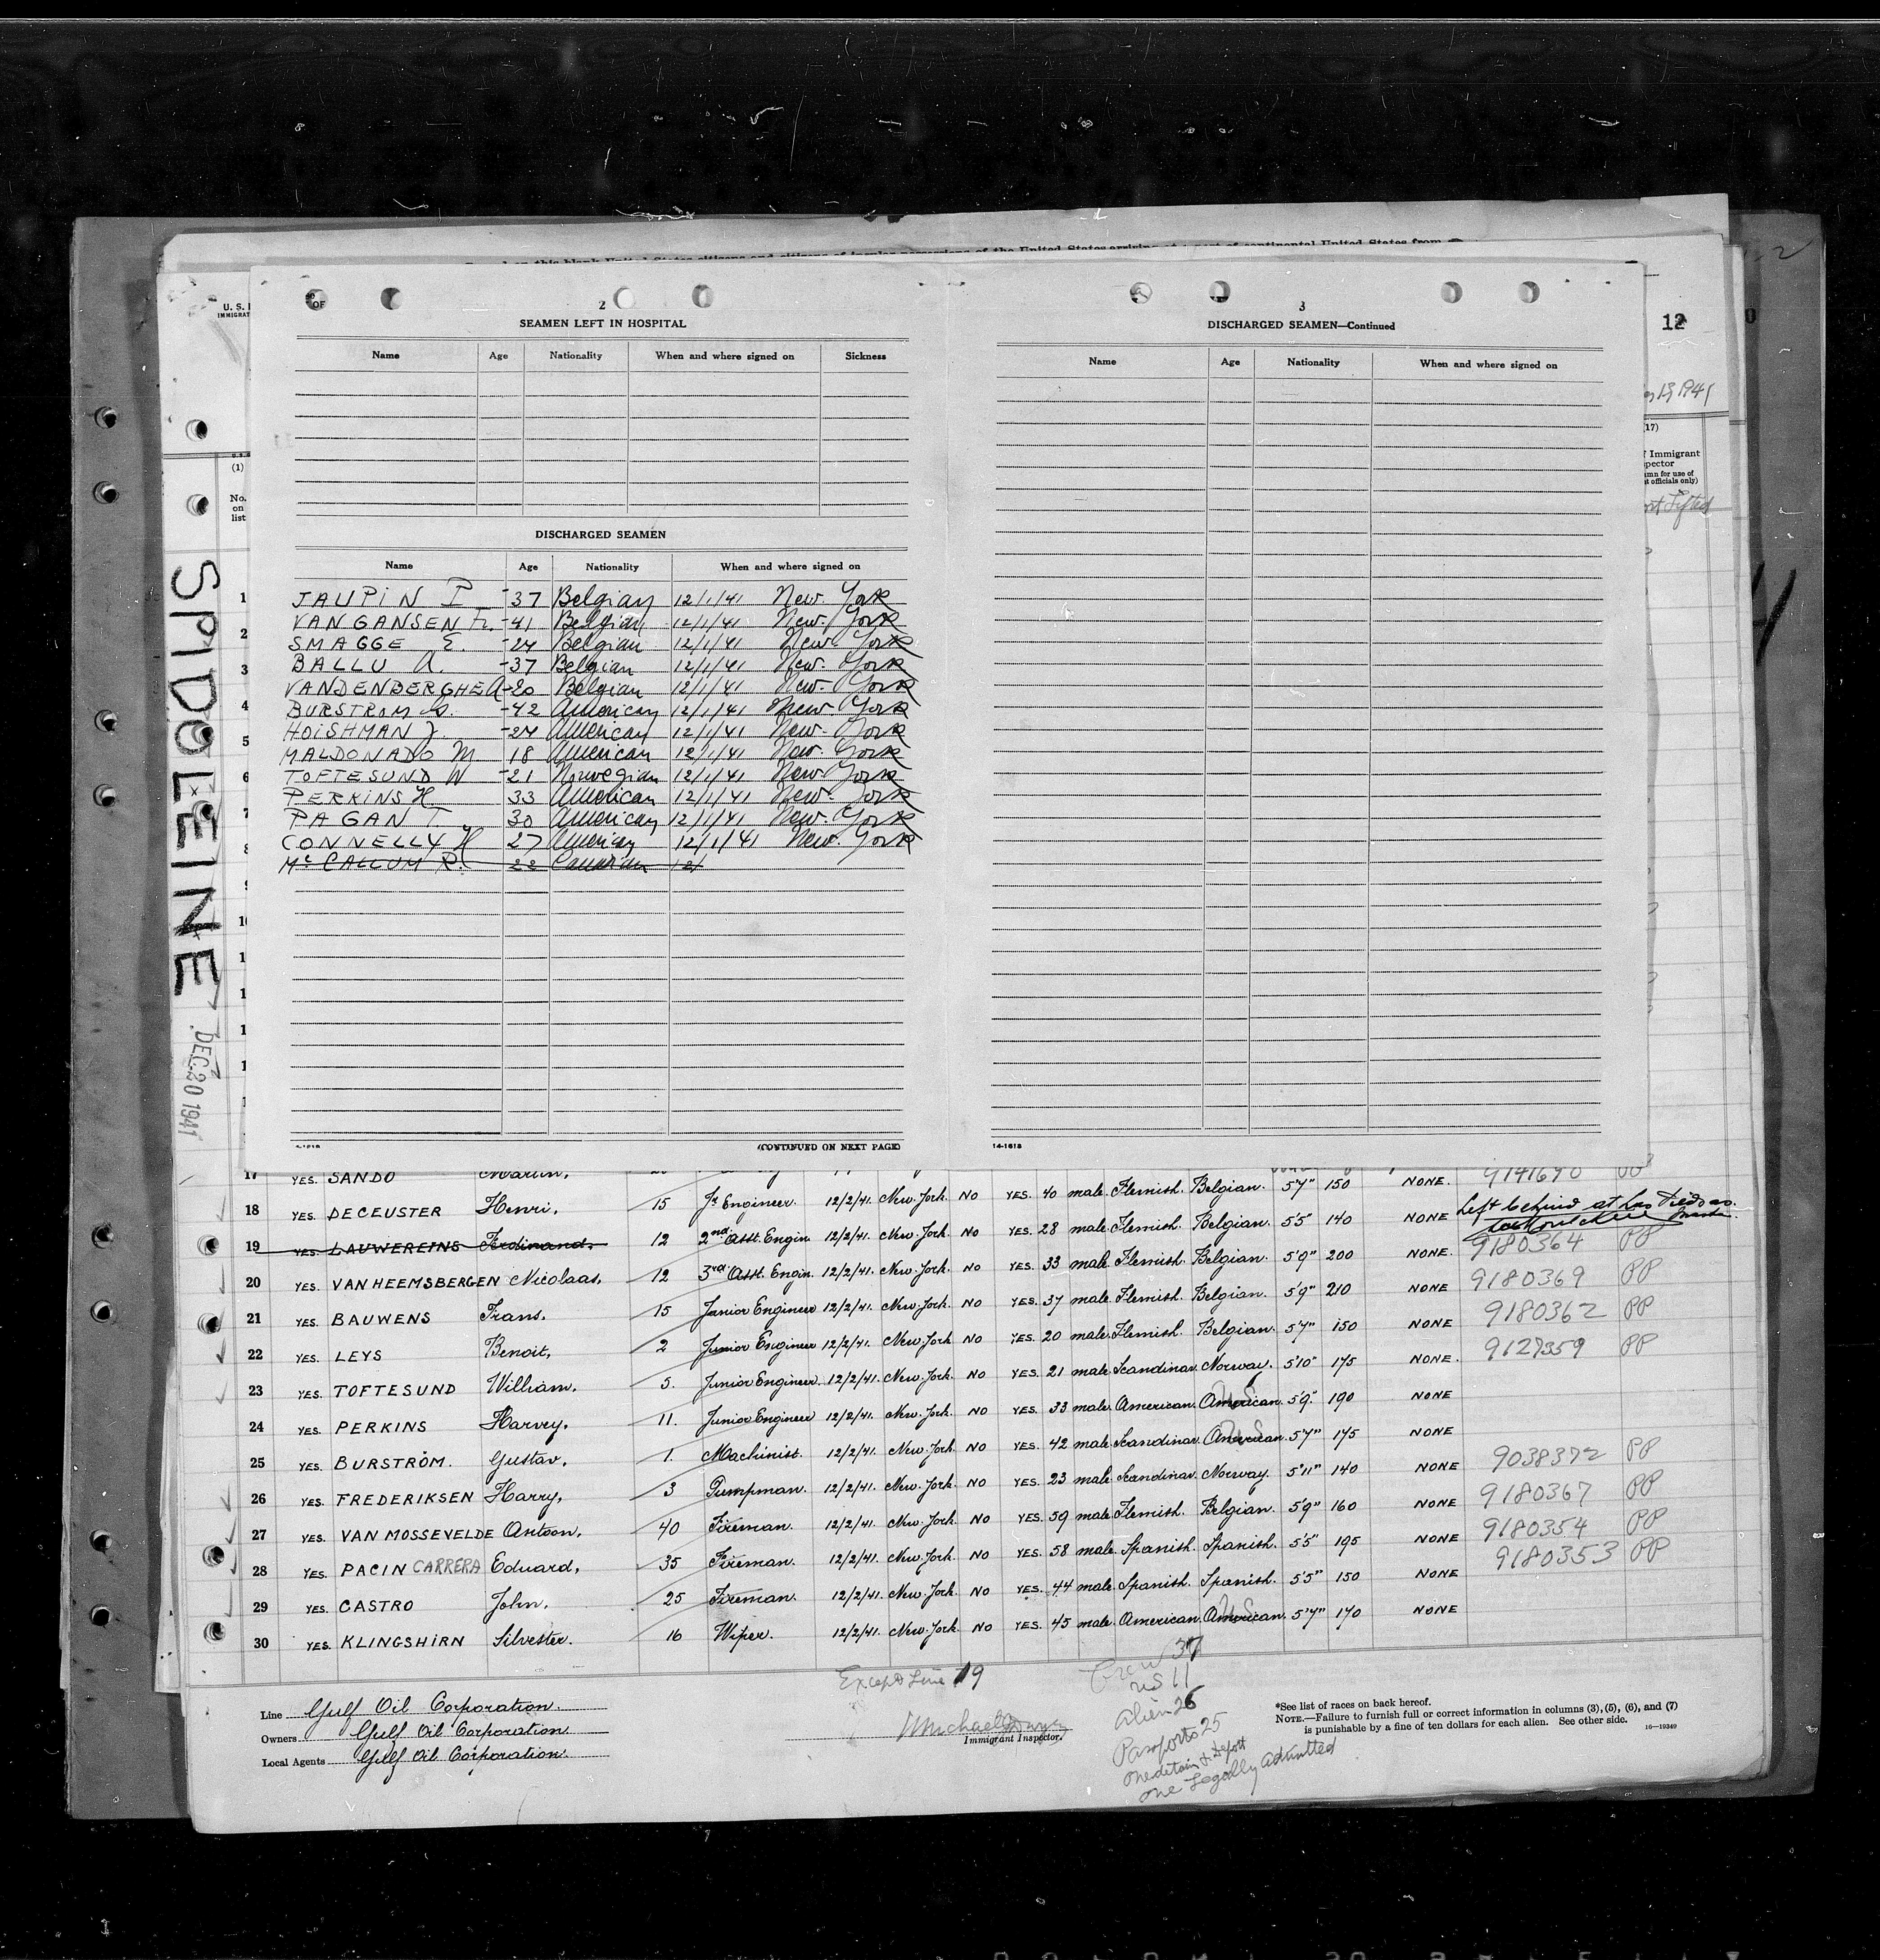 12
U. S.
IMMIGRAT
2
SEAMEN LEFT IN HOSPITAL
Name Age Nationality When and where signed on Sickness
DISCHARGED SEAMEN
Name Age Nationality When and where signed on
JAUPIN P -37 Belgian 12/1/41 New York
VAN GANSEN Fr. -41 Belgian 12/1/41 New York
SMAGGE E. -24 Belgian 12/1/41 New York
BALLU A. -37 Belgian 12/1/41 New York
VANDENBERGHE A -20 Belgian 12/1/41 New York
BURSTROM G. -42 American 12/1/41 New York
HOISHMAN J. -24 American 12/1/41 New York
MALDONADO M 18 American 12/1/41 New York
TOFTESUND W -21 Norwegian 12/1/41 New York
PERKINS H 33 American 12/1/41 New York
PAGAN T 30 American 12/1/41 New York
CONNELLY H 27 American 12/1/41 New York
Mc CALLUM R. 22 Canadian 12/
(CONTINUED ON NEXT PAGE)
3
DISCHARGED SEAMEN—Continued
Name Age Nationality When and where signed on
14-1618
(1)
No.
on
list
1
2
3
4
5
6
7
8
9
(17)
f Immigrant
pector
umn for use of
officials only)
SPIDOLEINE
DEC. 20 1941
17 YES. SANDO Martin, 9141690 PP
18 YES. DECEUSTER Henri, 15 Jr Engineer. 12/2/41. New-York. NO YES. 40 male. Flemish. Belgian. 5'7" 150 NONE. Left behind at Las Piedras.
19 YES. LAUWEREINS Ferdinand. 12 2nd Asst. Engin. 12/2/41. New-York. NO YES. 28 male. Flemish. Belgian. 5'5" 140 NONE
20 YES. VAN HEEMSBERGEN Nicolaas, 12 3rd Asst. Engin. 12/2/41. New-York. NO YES. 33 male. Flemish. Belgian. 5'9" 200 NONE. 9180364 PP
21 YES. BAUWENS Frans, 15 Junior Engineer 12/2/41. New-York. NO YES. 37 male. Flemish. Belgian. 5'9" 210 NONE 9180369 PP
22 YES. LEYS Benoit, 2 Junior Engineer 12/2/41. New-York. NO YES. 20 male. Flemish. Belgian. 5'7" 150 NONE 9180362 PP
23 YES. TOFTESUND William, 5. Junior Engineer 12/2/41. New-York. NO YES. 21 male. Scandinav. Norway. 5'10" 175 NONE. 9127359 PP
24 YES. PERKINS Harvey, 11. Junior Engineer 12/2/41. New-York. NO YES. 33 male. American. American. US 5'9" 190 NONE
25 YES. BURSTRÖM. Gustav, 1. Machinist. 12/2/41. New-York. NO YES. 42 male. Scandinav. American. US 5'7" 175 NONE
26 YES. FREDERIKSEN Harry, 3 Pumpman. 12/2/41. New-York. NO YES. 23 male. Scandinav. Norway. 5'11" 140 NONE 9038372 PP
27 YES. VAN MOSSEVELDE Antoon, 40 Fireman. 12/2/41. New-York. NO YES. 39 male. Flemish. Belgian. 5'9" 160 NONE 9180367 PP
28 YES. PACIN CARRERA Eduard, 35 Fireman. 12/2/41. New-York. NO YES. 58 male. Spanish. Spanish. 5'5" 195 NONE 9180354 PP
29 YES. CASTRO John, 25 Fireman. 12/2/41. New-York. NO YES. 44 male. Spanish. Spanish. 5'5" 150 NONE 9180353 PP
30 YES. KLINGSHIRN Silvester. 16 Wiper. 12/2/41. New-York. NO YES. 45 male. American. American. US 5'7" 170 NONE
Except Line 19
Crew 37
US 11
Alien 26
Passports 25
one detain & Deport
one Legally admitted
Line Gulf Oil Corporation.
Owners Gulf Oil Corporation.
Local Agents Gulf Oil Corporation.
Immigrant Inspector.
*See list of races on back hereof.
NOTE.—Failure to furnish full or correct information in columns (3), (5), (6), and (7)
is punishable by a fine of ten dollars for each alien. See other side. 16—19349